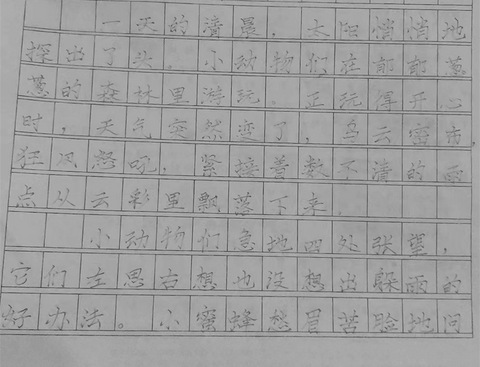 一天的清晨，太阳悄悄地
探出了头。小动物们在郁郁葱
葱的森林里游玩。正玩得开心
时，天气突然变了，乌云密布，
狂风怒吼，紧接着数不清的雨
点从云彩里飘落下来。
小动物们急地四处张望，
它们左思右想也没想出躲雨的
好办法。小蜜蜂愁眉苦脸地问